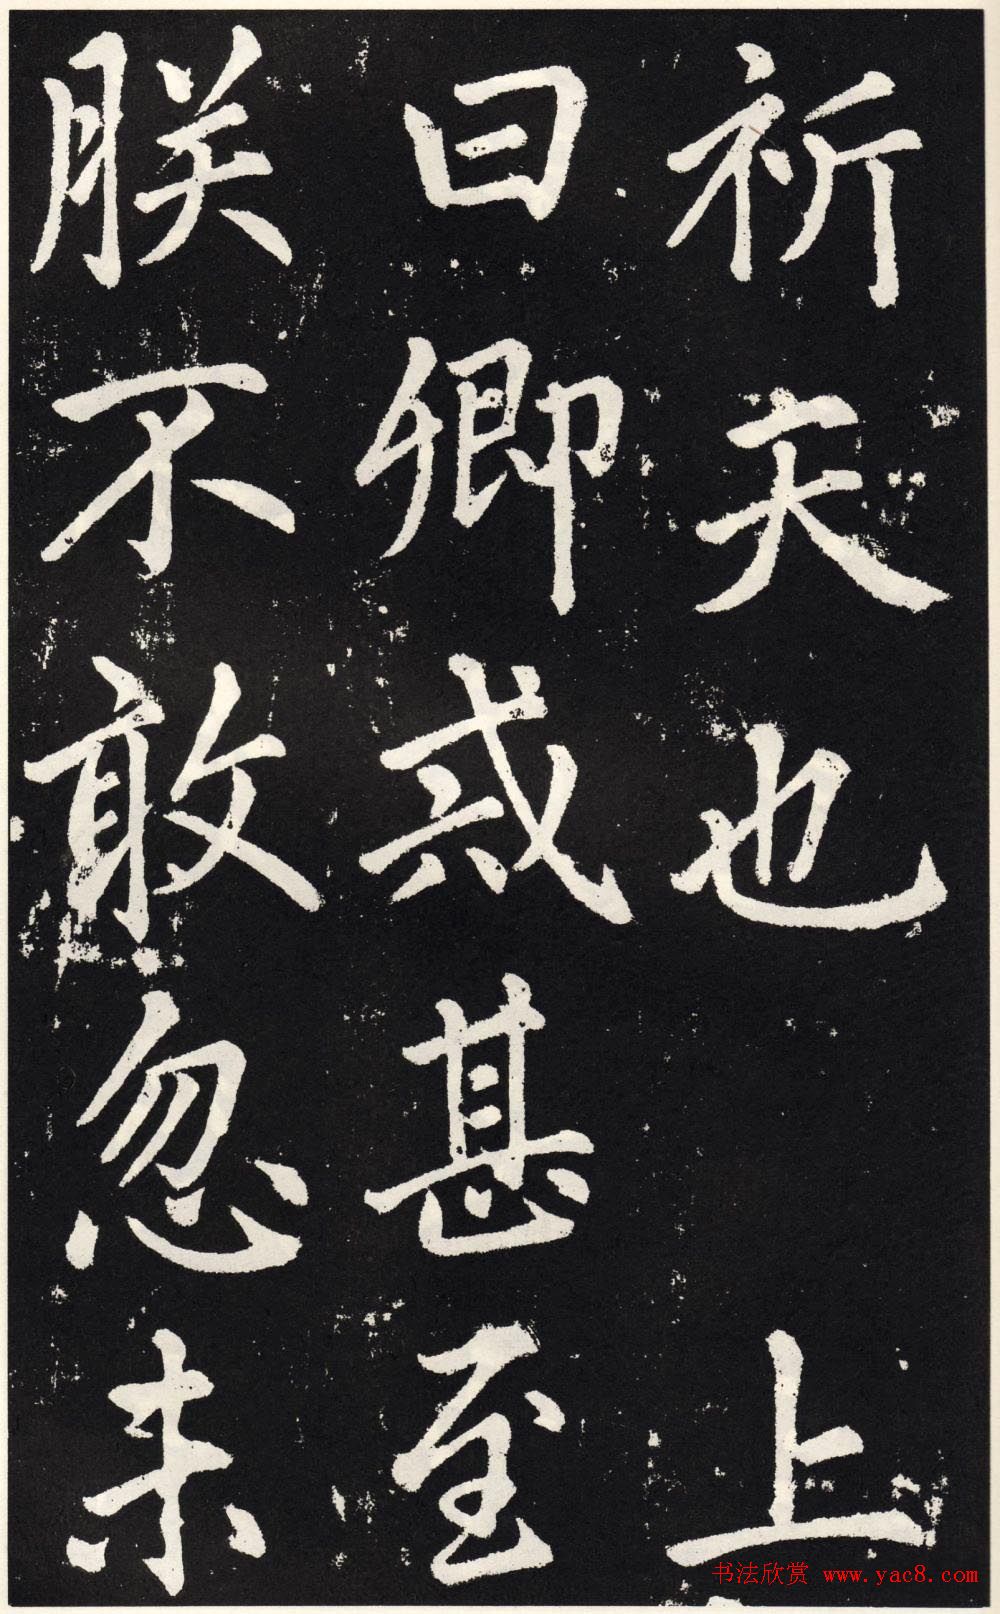 祈天也 上
曰卿戒甚至
朕不敢忽未
书法欣赏 www.yac8.com